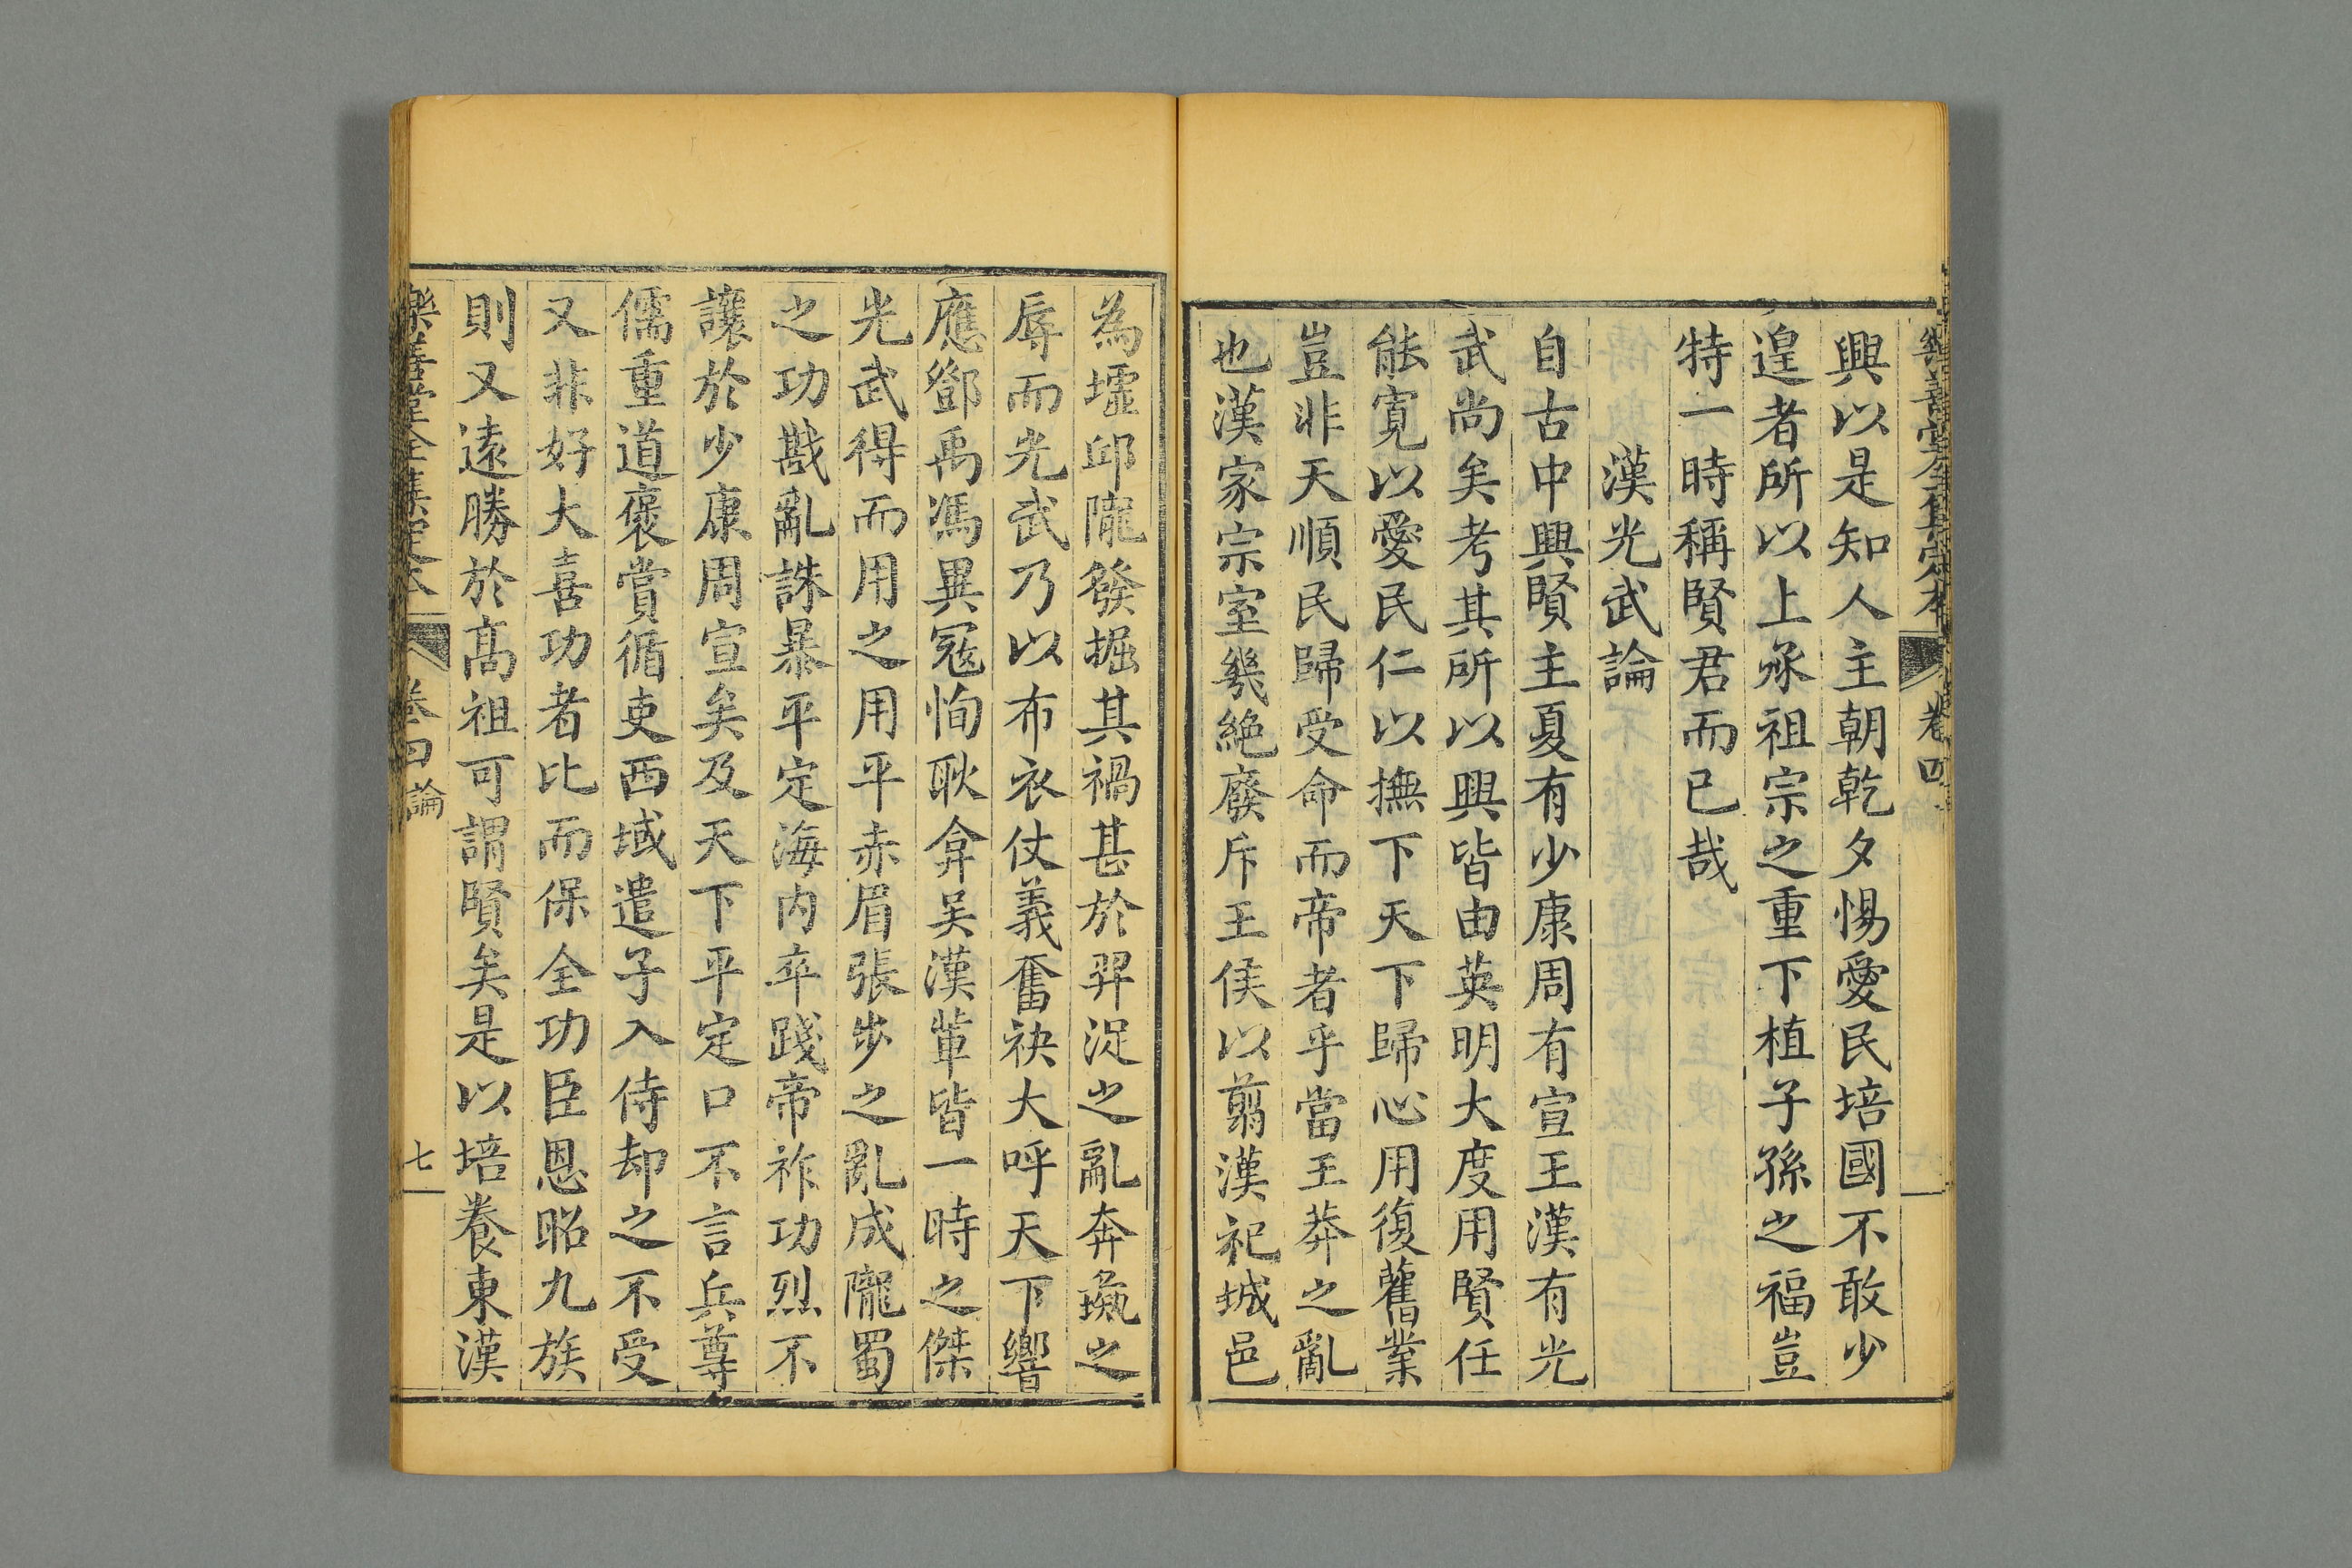 樂善堂全集定本 卷四
興以是知人主朝乾夕惕愛民培國不敢少
遑者所以上承祖宗之重下植子孫之福豈
特一時稱賢君而已哉
漢光武論
自古中興賢主夏有少康周有宣王漢有光
武尚矣考其所以興皆由英明大度用賢任
能寬以愛民仁以撫下天下歸心用復舊業
豈非天順民歸受命而帝者乎當王莽之亂
也漢家宗室幾絶廢斥王侯以翦漢祀城邑
為墟邱隴發掘其禍甚於羿浞之亂奔彘之
辱而光武乃以布衣仗義奮袂大呼天下響
應鄧禹馮異冦恂耿弇吴漢軰皆一時之傑
光武得而用之用平赤眉張步之亂成隴蜀
之功戡亂誅暴平定海内卒踐帝祚功烈不
讓於少康周宣矣及天下平定口不言兵尊
儒重道褒賞循吏西域遣子入侍却之不受
又非好大喜功者比而保全功臣恩昭九族
則又遠勝於髙祖可謂賢矣是以培養東漢
樂善堂全集定本 卷四 論 七